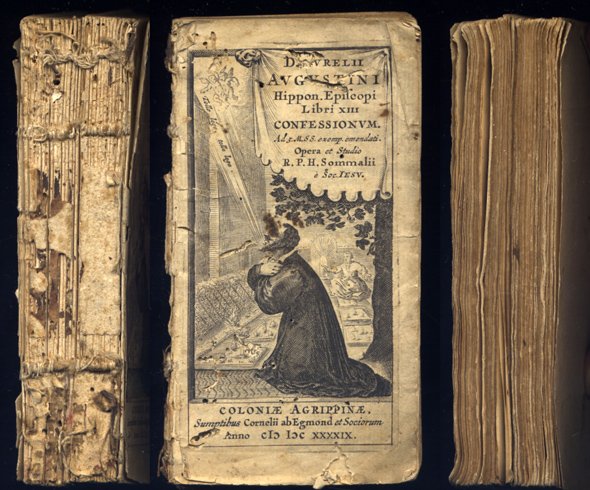 D. AVRELII
AVGUSTINI
Hippon. Episcopi
Libri XIII
CONFESSIONVM.
Ad 3. M.SS. exemp. emendati.
Opera et Studio
R. P. H. Sommalii
è Soc. IESV.
Tolle lege, tolle lege
COLONIÆ AGRIPPINÆ,
Sumptibus Cornelii ab Egmond et Sociorum
Anno cIɔ Iɔc XXXXIX.